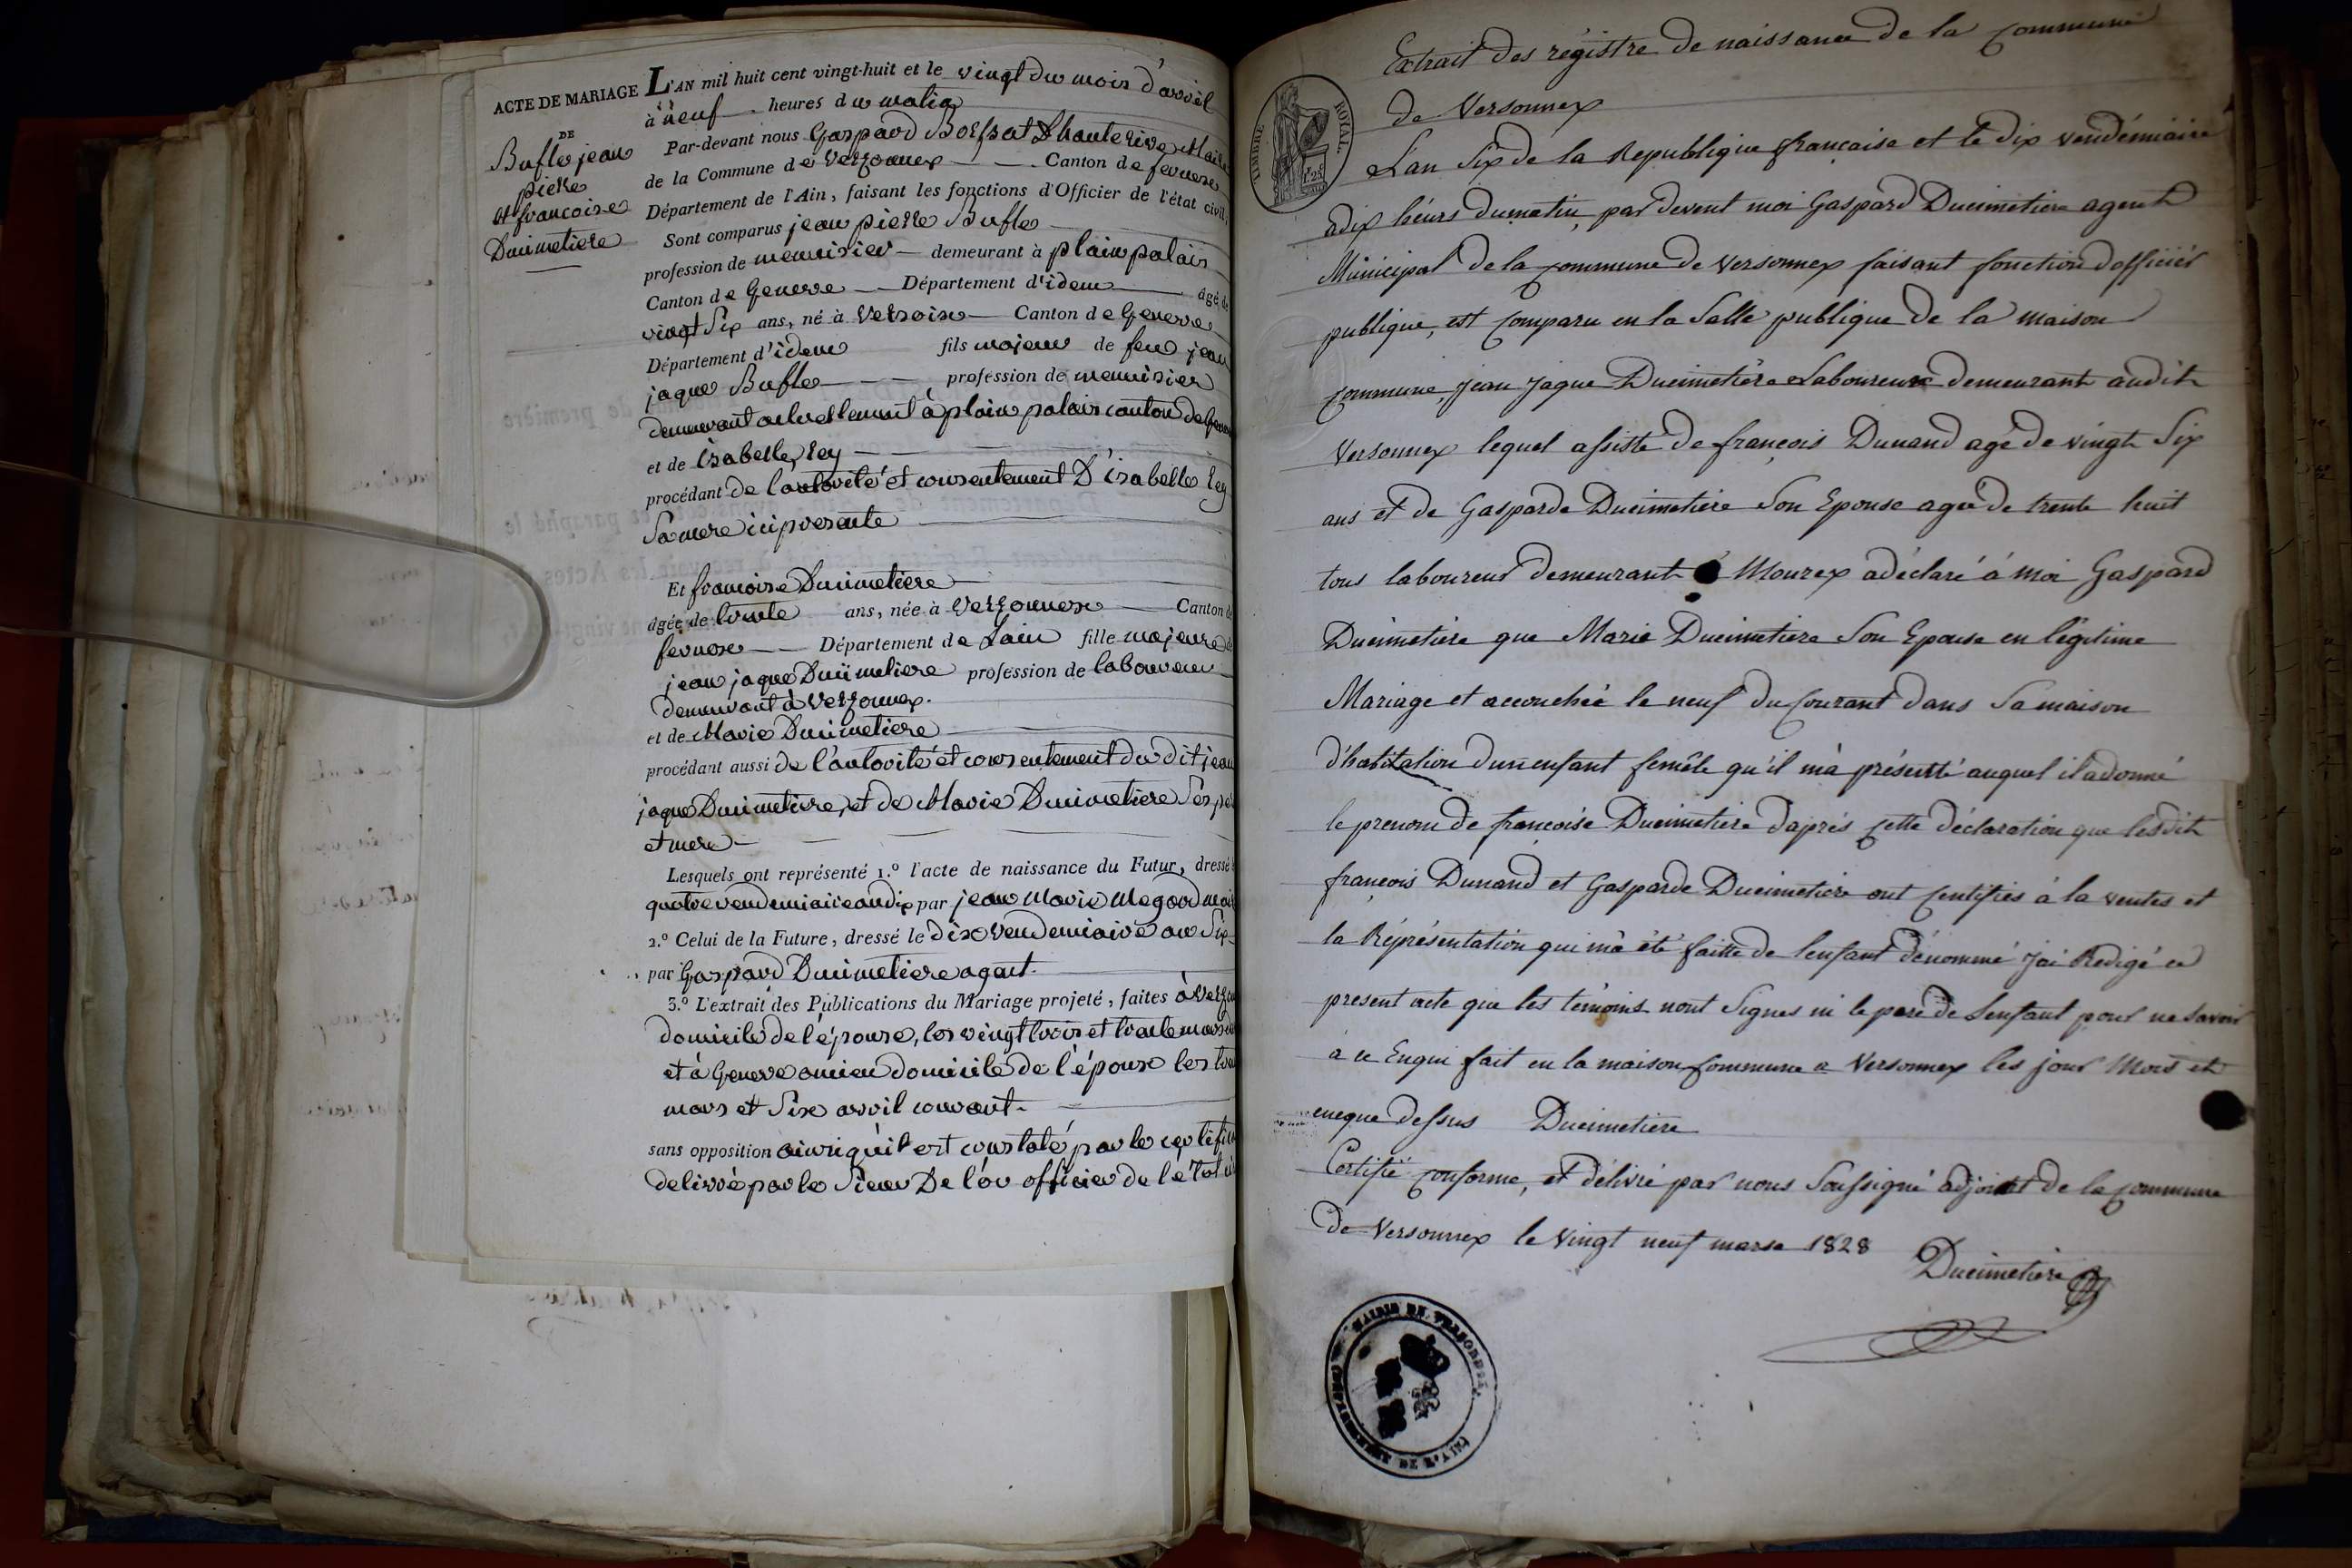 ACTE DE MARIAGE
DE
Bufle jean
pierre
et francoise
Ducimetiere
L'AN mil huit cent vingt-huit et le vingt du mois d'avril
à neuf heures du matin
Par-devant nous Gaspard Borssat Dhauterive Maire
de la Commune de Versonnex Canton de fernex
Département de l'Ain, faisant les fonctions d'Officier de l'état civil,
Sont comparus jean pierre Bufle
profession de menuisier demeurant à plain palais
Canton de Geneve Département d'idem âgé de
vingt Six ans, né à Versoix Canton de Geneve
Département d'idem fils majeur de feu jean
jaque Bufle profession de menuisier
demeurant actuellement à plain palais canton de
et de isabelle Rey
procédant de l'autorité et consentement D'isabelle Rey
Sa mere ici presente
Et francoise Ducimetiere
âgée de trente ans, née à Versonnex Canton de
fernex Département de Lain fille majeure de
jean jaque Ducimetiere profession de laboureur
demeurant à Versonnex.
et de Marie Ducimetiere
procédant aussi de l'autorité et consentement du dit jean
jaque Ducimetiere, et de Marie Ducimetiere Ses
et mere
Lesquels ont représenté 1.º l'acte de naissance du Futur, dressé
quatre vendemiaire an dix par jean Marie Megard
2.º Celui de la Future, dressé le dix vendemiaire an Six
par Gaspard Ducimetiere agent.
3.º L'extrait des Publications du Mariage projeté, faites à
domicile de l'épouse, les vingt trois et trente mars
et à Geneve ancien domicile de l'époux les
mars et Six avril courant.
sans opposition ainsi qu'il est constaté par le
delivré par le Sieur De l'or officier de l'état
TIMBRE ROYAL.
1.25
Extrait des régistre de naissance de la commune
de Versonnex
L'an Six de la Republique française et le dix vendémiaire
a dix héurs du matin, par devent moi Gaspard Ducimetiere agent
Municipal de la commune de Versonnex faisant fonction dofficiér
publique, est comparu en la Salle publique de la maison
commune, jean jaque Ducimetière Laboureur demeurant audit
Versonnex lequel assisté de françois Dunand agé de vingt Six
ans et de Gasparde Ducimetiere Son Epouse ageé de trente huit
tous laboureur demeurant à Mourex a déclaré á moi Gaspard
Ducimetiére que Marie Ducimetiere Son Epouse en légitime
Mariage et accouchée le neuf du courant dans Sa maison
d'habitation d'un enfant femêle qu'il m'a présenté auquel il a donné
le prenom de françoise Ducimetiere d'aprés cette déclaration que lesdit
françois Dunand et Gasparde Ducimetiere ont certifiés á la ventes et
la Réprésentation qui m'a été faitte de lenfant dénommé j'ai Redigé ce
present acte que les témoins nont Signes ni le pere de Lenfant pour ne Savoir
a ce Enqui fait en la maison commune a Versonnex les jour Mois et
que dessus Ducimetiere
Certifié conforme, et délivré par nous Soussigné adjoint de la commune
de Versonnex le vingt neuf marse 1828
Ducimetiere
MAIRIE DE VERSONNEX